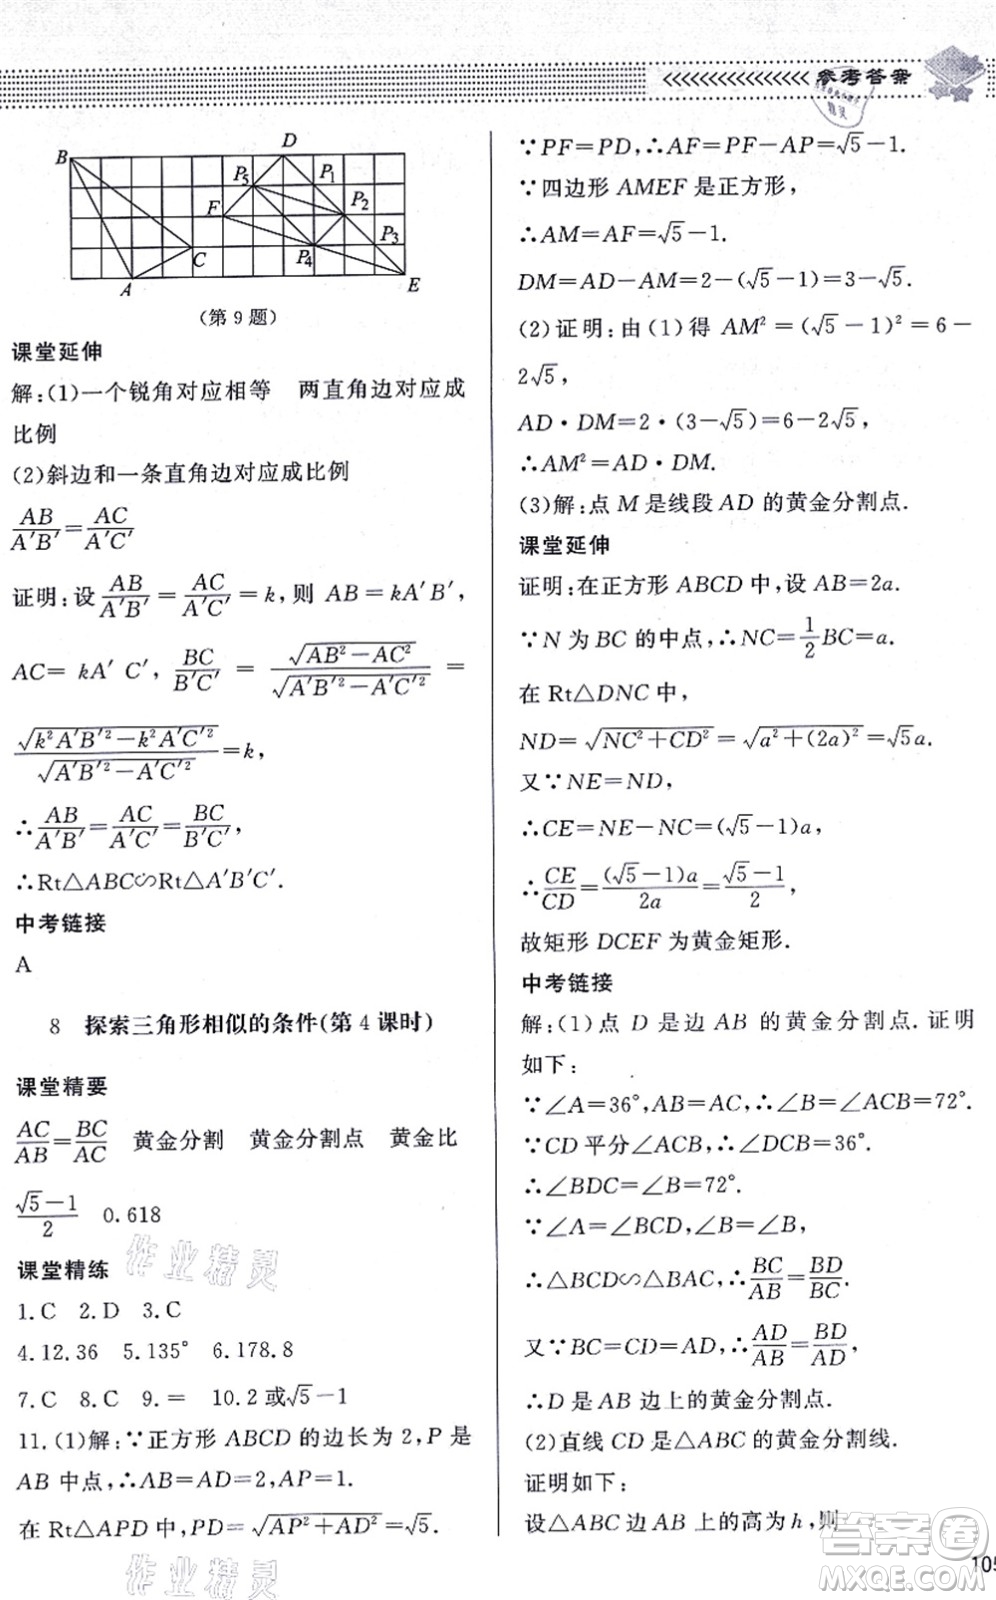 参考答案
B
D
P₅
P₁
F
P₂
C
P₄
P₃
A
E
(第 9 题)
课堂延伸
解:(1)一个锐角对应相等 两直角边对应成
比例
(2)斜边和一条直角边对应成比例
AB/A′B′=AC/A′C′
证明:设AB/A′B′=AC/A′C′=k,则 AB=kA′B′,
AC=kA′C′,BC/B′C′=√(AB²-AC²)/√(A′B′²-A′C′²)=
√(k²A′B′²-k²A′C′²)/√(A′B′²-A′C′²)=k,
∴AB/A′B′=AC/A′C′=BC/B′C′,
∴Rt△ABC∽Rt△A′B′C′.
中考链接
A
8 探索三角形相似的条件(第 4 课时)
课堂精要
AC/AB=BC/AC 黄金分割 黄金分割点 黄金比
(√5-1)/2 0.618
课堂精练
1.C 2.D 3.C
4.12.36 5.135° 6.178.8
7.C 8.C 9.= 10.2或√5-1
11.(1)解:∵正方形 ABCD 的边长为 2,P 是
AB 中点,∴AB=AD=2,AP=1.
在 Rt△APD 中,PD=√(AP²+AD²)=√5.
∵PF=PD,∴AF=PF-AP=√5-1.
∵四边形 AMEF 是正方形,
∴AM=AF=√5-1.
DM=AD-AM=2-(√5-1)=3-√5.
(2)证明:由(1)得 AM²=(√5-1)²=6-
2√5,
AD·DM=2·(3-√5)=6-2√5,
∴AM²=AD·DM.
(3)解:点 M 是线段 AD 的黄金分割点.
课堂延伸
证明:在正方形 ABCD 中,设 AB=2a.
∵N 为 BC 的中点,∴NC=1/2BC=a.
在 Rt△DNC 中,
ND=√(NC²+CD²)=√(a²+(2a)²)=√5a.
又∵NE=ND,
∴CE=NE-NC=(√5-1)a,
∴CE/CD=(√5-1)a/2a=(√5-1)/2,
故矩形 DCEF 为黄金矩形.
中考链接
解:(1)点 D 是边 AB 的黄金分割点.证明
如下:
∵∠A=36°,AB=AC,∴∠B=∠ACB=72°.
∵CD 平分∠ACB,∴∠DCB=36°.
∴∠BDC=∠B=72°.
∵∠A=∠BCD,∠B=∠B,
∴△BCD∽△BAC,∴BC/AB=BD/BC.
又∵BC=CD=AD,∴AD/AB=BD/AD,
∴D 是 AB 边上的黄金分割点.
(2)直线 CD 是△ABC 的黄金分割线.
证明如下:
设△ABC 边 AB 上的高为 h,则
作业精灵
作业精灵
答案卷
MXQE.COM
105